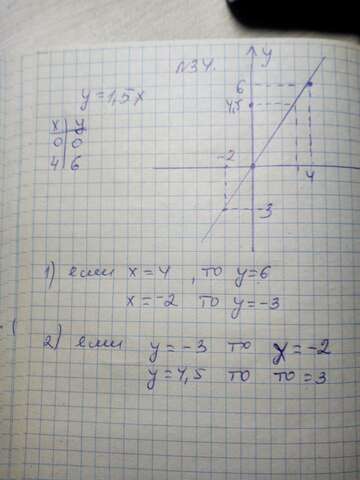 №34.
y = 1,5x
x | y
0 | 0
4 | 6
y
6
4,5
-2
4
-3
1) если x = 4, то y = 6
x = -2 то y = -3
2) если y = -3 то x = -2
y = 4,5 то то = 3